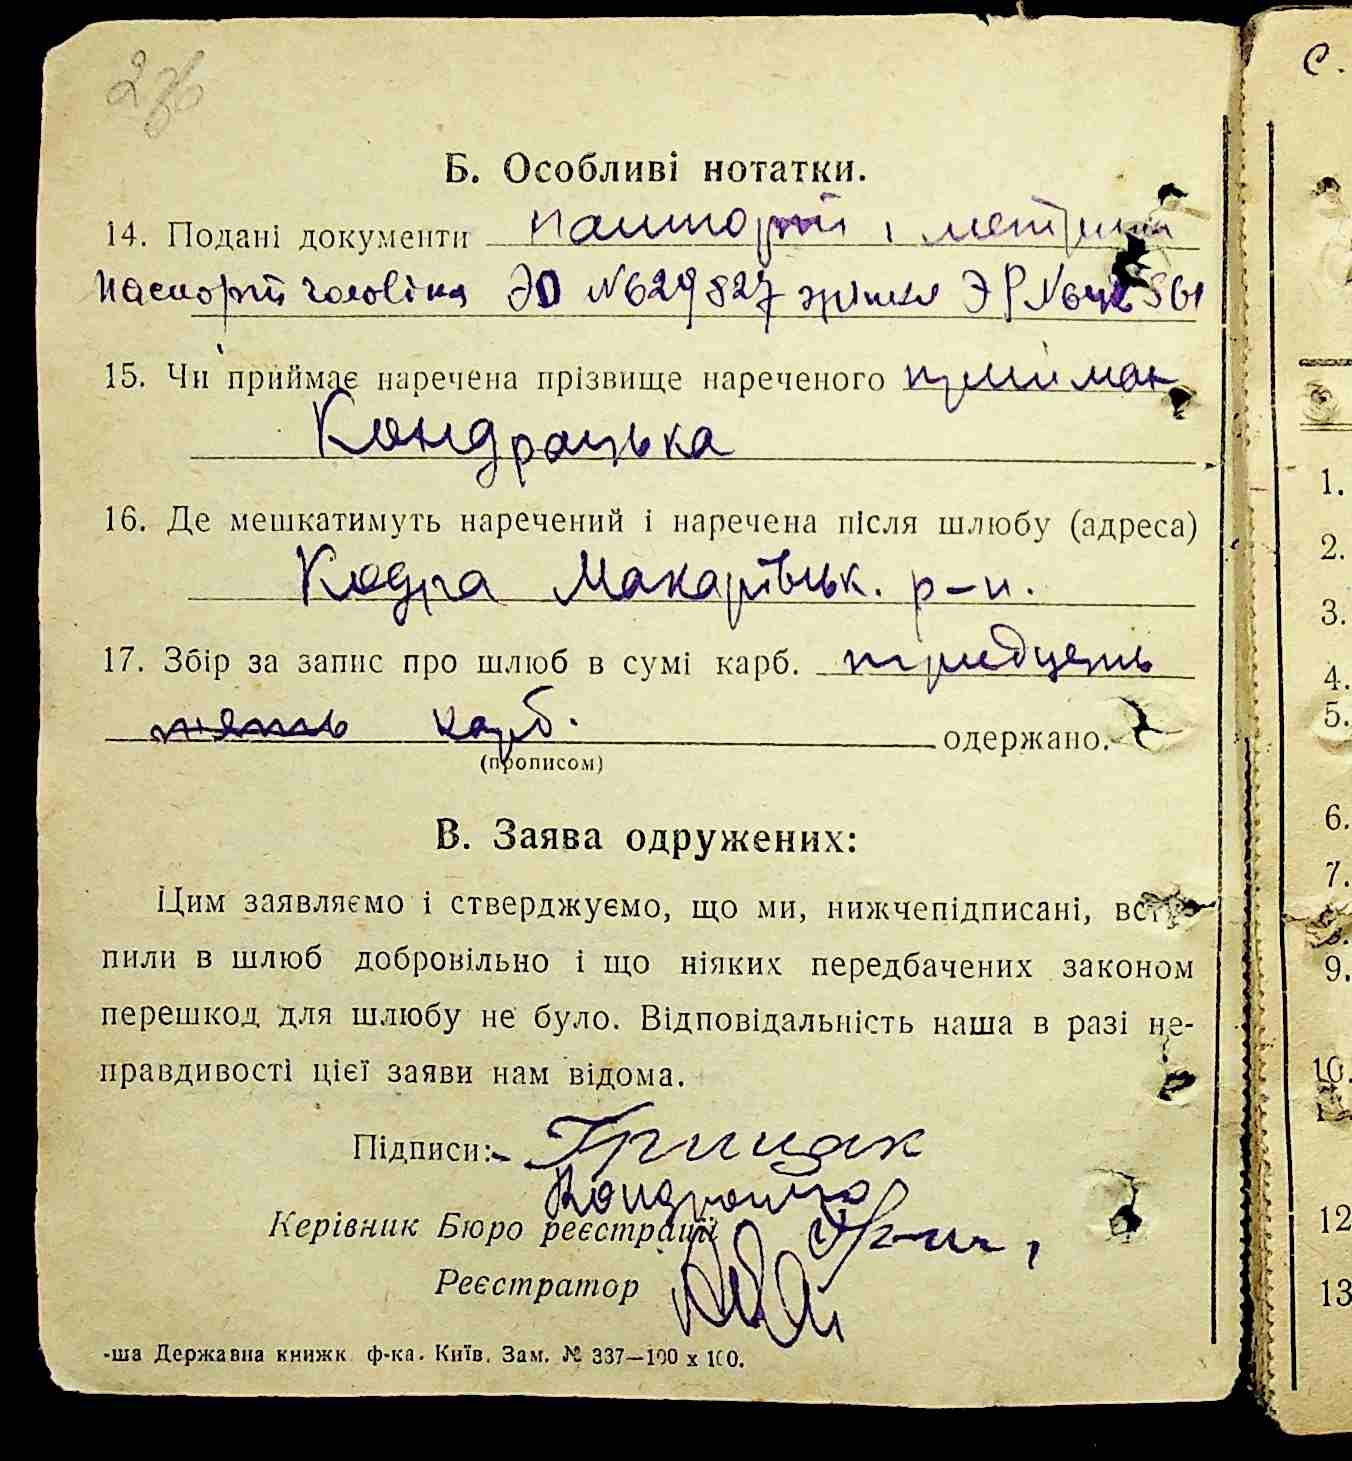 Б. Особливі нотатки.
14. Подані документи пашпорти і метрики
паспорт чоловіка ЭО №629827
15. Чи приймає наречена прізвище нареченого приймає
Кондрацька
16. Де мешкатимуть наречений і наречена після шлюбу (адреса)
Кодра Макарівськ. р-н.
17. Збір за запис про шлюб в сумі карб. тридцять
пять карб. одержано.
(прописом)
В. Заява одружених:
Цим заявляємо і стверджуємо, що ми, нижчепідписані, всту-
пили в шлюб добровільно і що ніяких передбачених законом
перешкод для шлюбу не було. Відповідальність наша в разі не-
правдивості цієї заяви нам відома.
Підписи: Грицак
Керівник Бюро реєстрації
Реєстратор
-ша Державна книжк. ф-ка. Київ. Зам. № 337—100 х 100.
с.
1.
2.
3.
4.
5.
6.
7.
8.
9.
10.
12
13